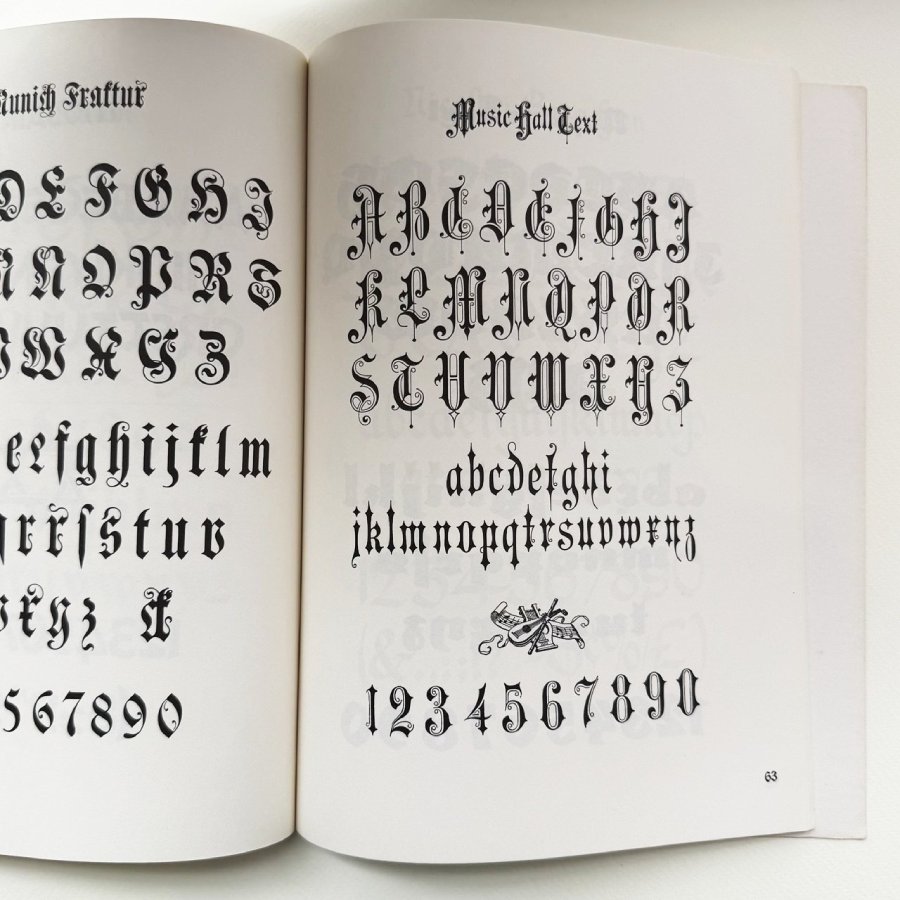 Munich Fraktur
D E F G H I
M N O P R S
V W X Y Z
e e f g h i j k l m
q r r ſ s t u v
w x y z &
5 6 7 8 9 0
Music Hall Text
A B C D E F G H I
K L M N O P Q R
S T U V W X Y Z
a b c d e f g h i
j k l m n o p q t r s u v w x y z
1 2 3 4 5 6 7 8 9 0
63